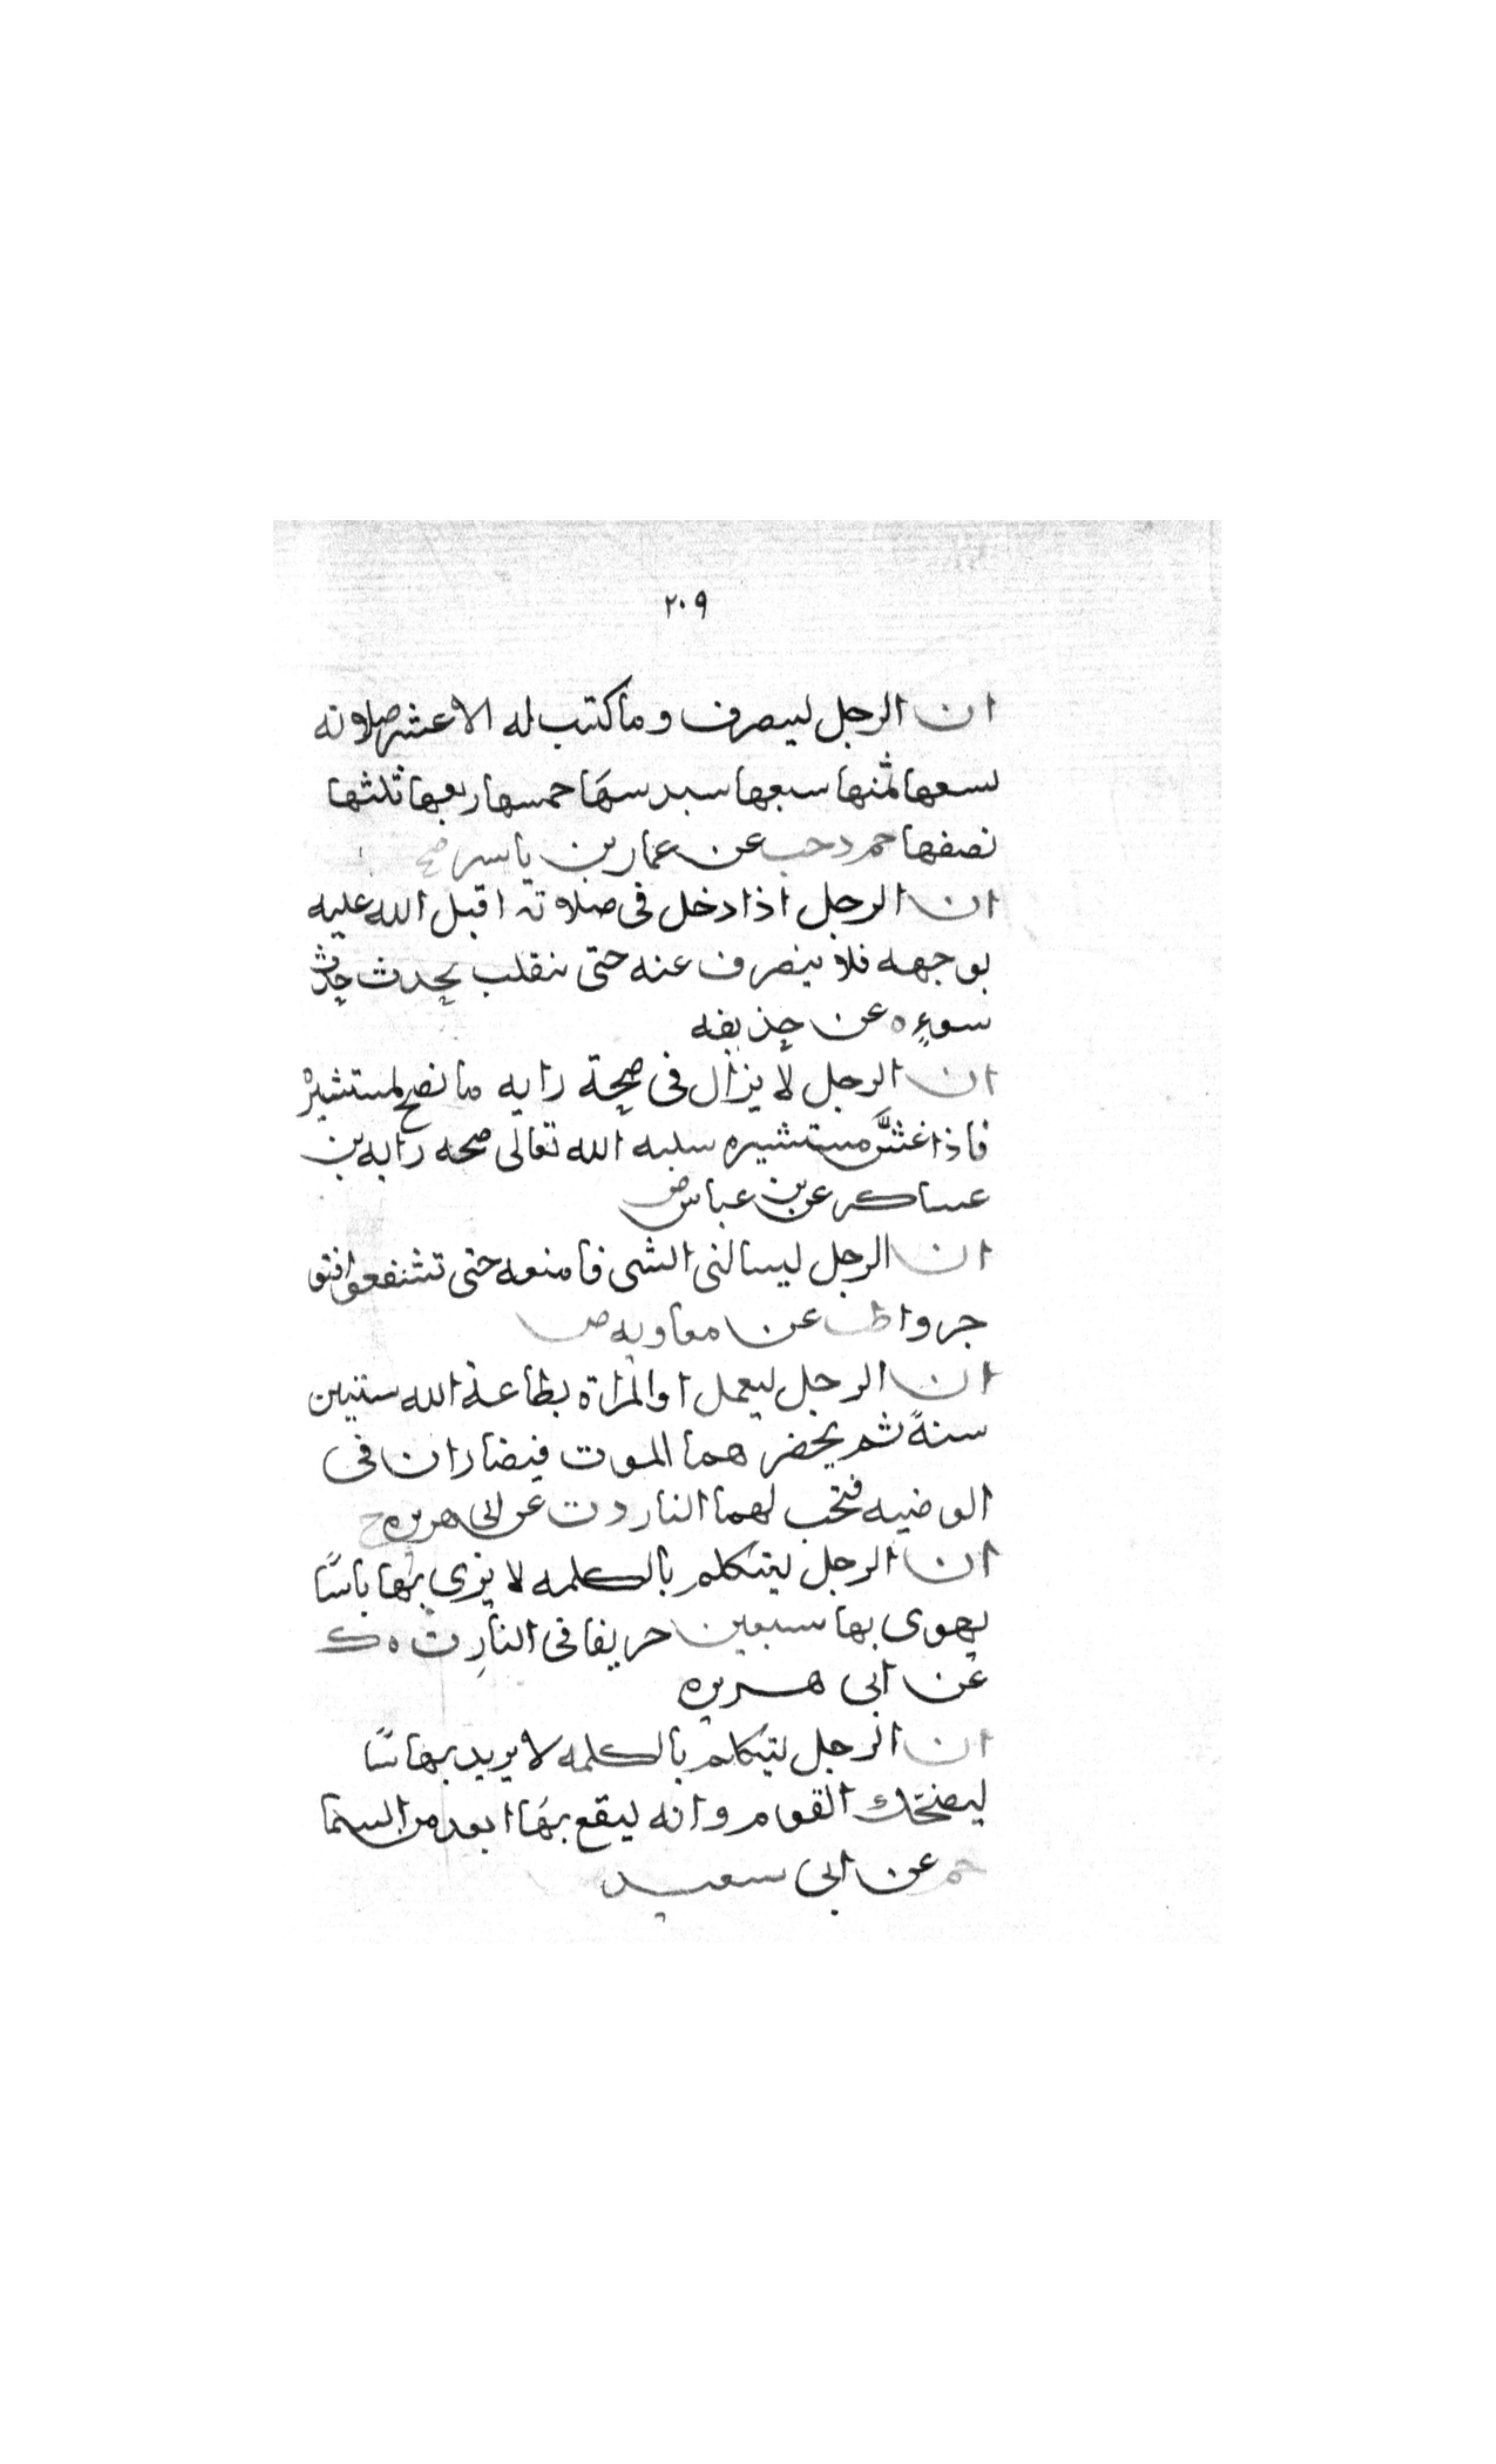 ٢٠٩
ان الرجل لينصرف وما كتب له الا عشر صلاته
تسعها ثمنها سبعها سدسها خمسها ربعها ثلثها
نصفها حم د حب عن عمار بن ياسر صح
ان الرجل اذا دخل فى صلاته اقبل الله عليه
بوجهه فلا ينصرف عنه حتى ينقلب يحدث حدث
سوءٍ ه عن حذيفه
ان الرجل لا يزال فى صحة رايه ما نصح لمستشيره
فاذا غشَّ مستشيره سلبه الله تعالى صحه رايه بن
عساكر عن بن عباس ض
ان الرجل ليسالنى الشى فامنعه حتى تشفعوا فتو
جروا طب عن معاويه ض
ان الرجل ليعمل او المراة بطاعة الله ستين
سنةً ثم يحضر هما الموت فيضاران فى
الوضيه فتجب لهما النار د ت عن ابى هريره ح
ان الرجل ليتكلم بالكلمه لا يرى بها باسًا
يهوى بها سبعين خريفا فى النار ت ه ك
عن ابى هريره
ان الرجل ليتكلم بالكلمه لا يريد بها باسًا
ليضحك القوم وانه ليقع بها ابعد من السما
حم عن ابى سعيد